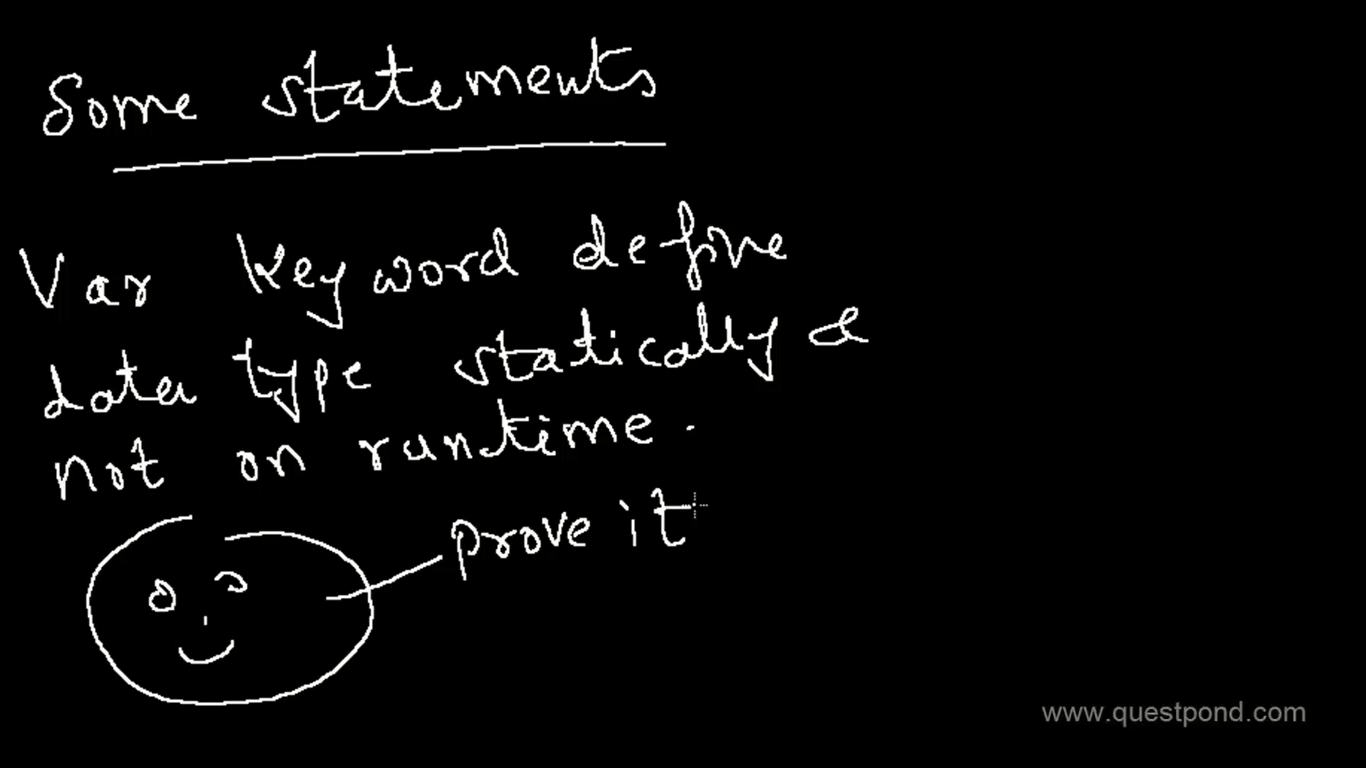 Some statements
Var keyword define
data type statically &
not on runtime.
prove it
www.questpond.com